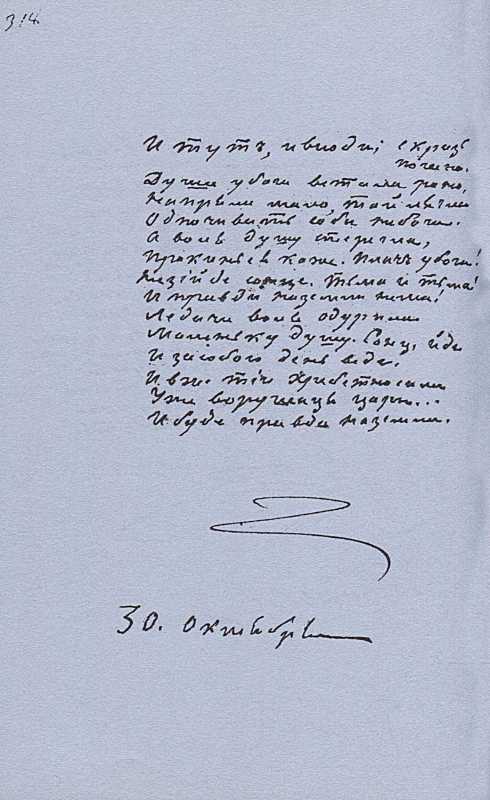 314.
И тутъ, и всюди; скризь
погано.
Душа убога встала рано,
Напряла мало, тай лягла
Одпочивать соби небога.
А воля душу стерегла,
Прокинься каже. Плачь убога!
Незійде сонце. Тьма и тьма!
И правди наземли нема!
Ледача воля одурила
Маленьку душу. Сонце йде
И засобою день веде.
И вже тіи хребетносили
Уже ворушаться цари...
И буде правда наземли.
30. Октября